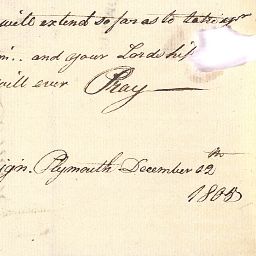 will extend so far as to
m'.. and your Lordship
will ever Pray
ign. Plymouth December 12th
1805